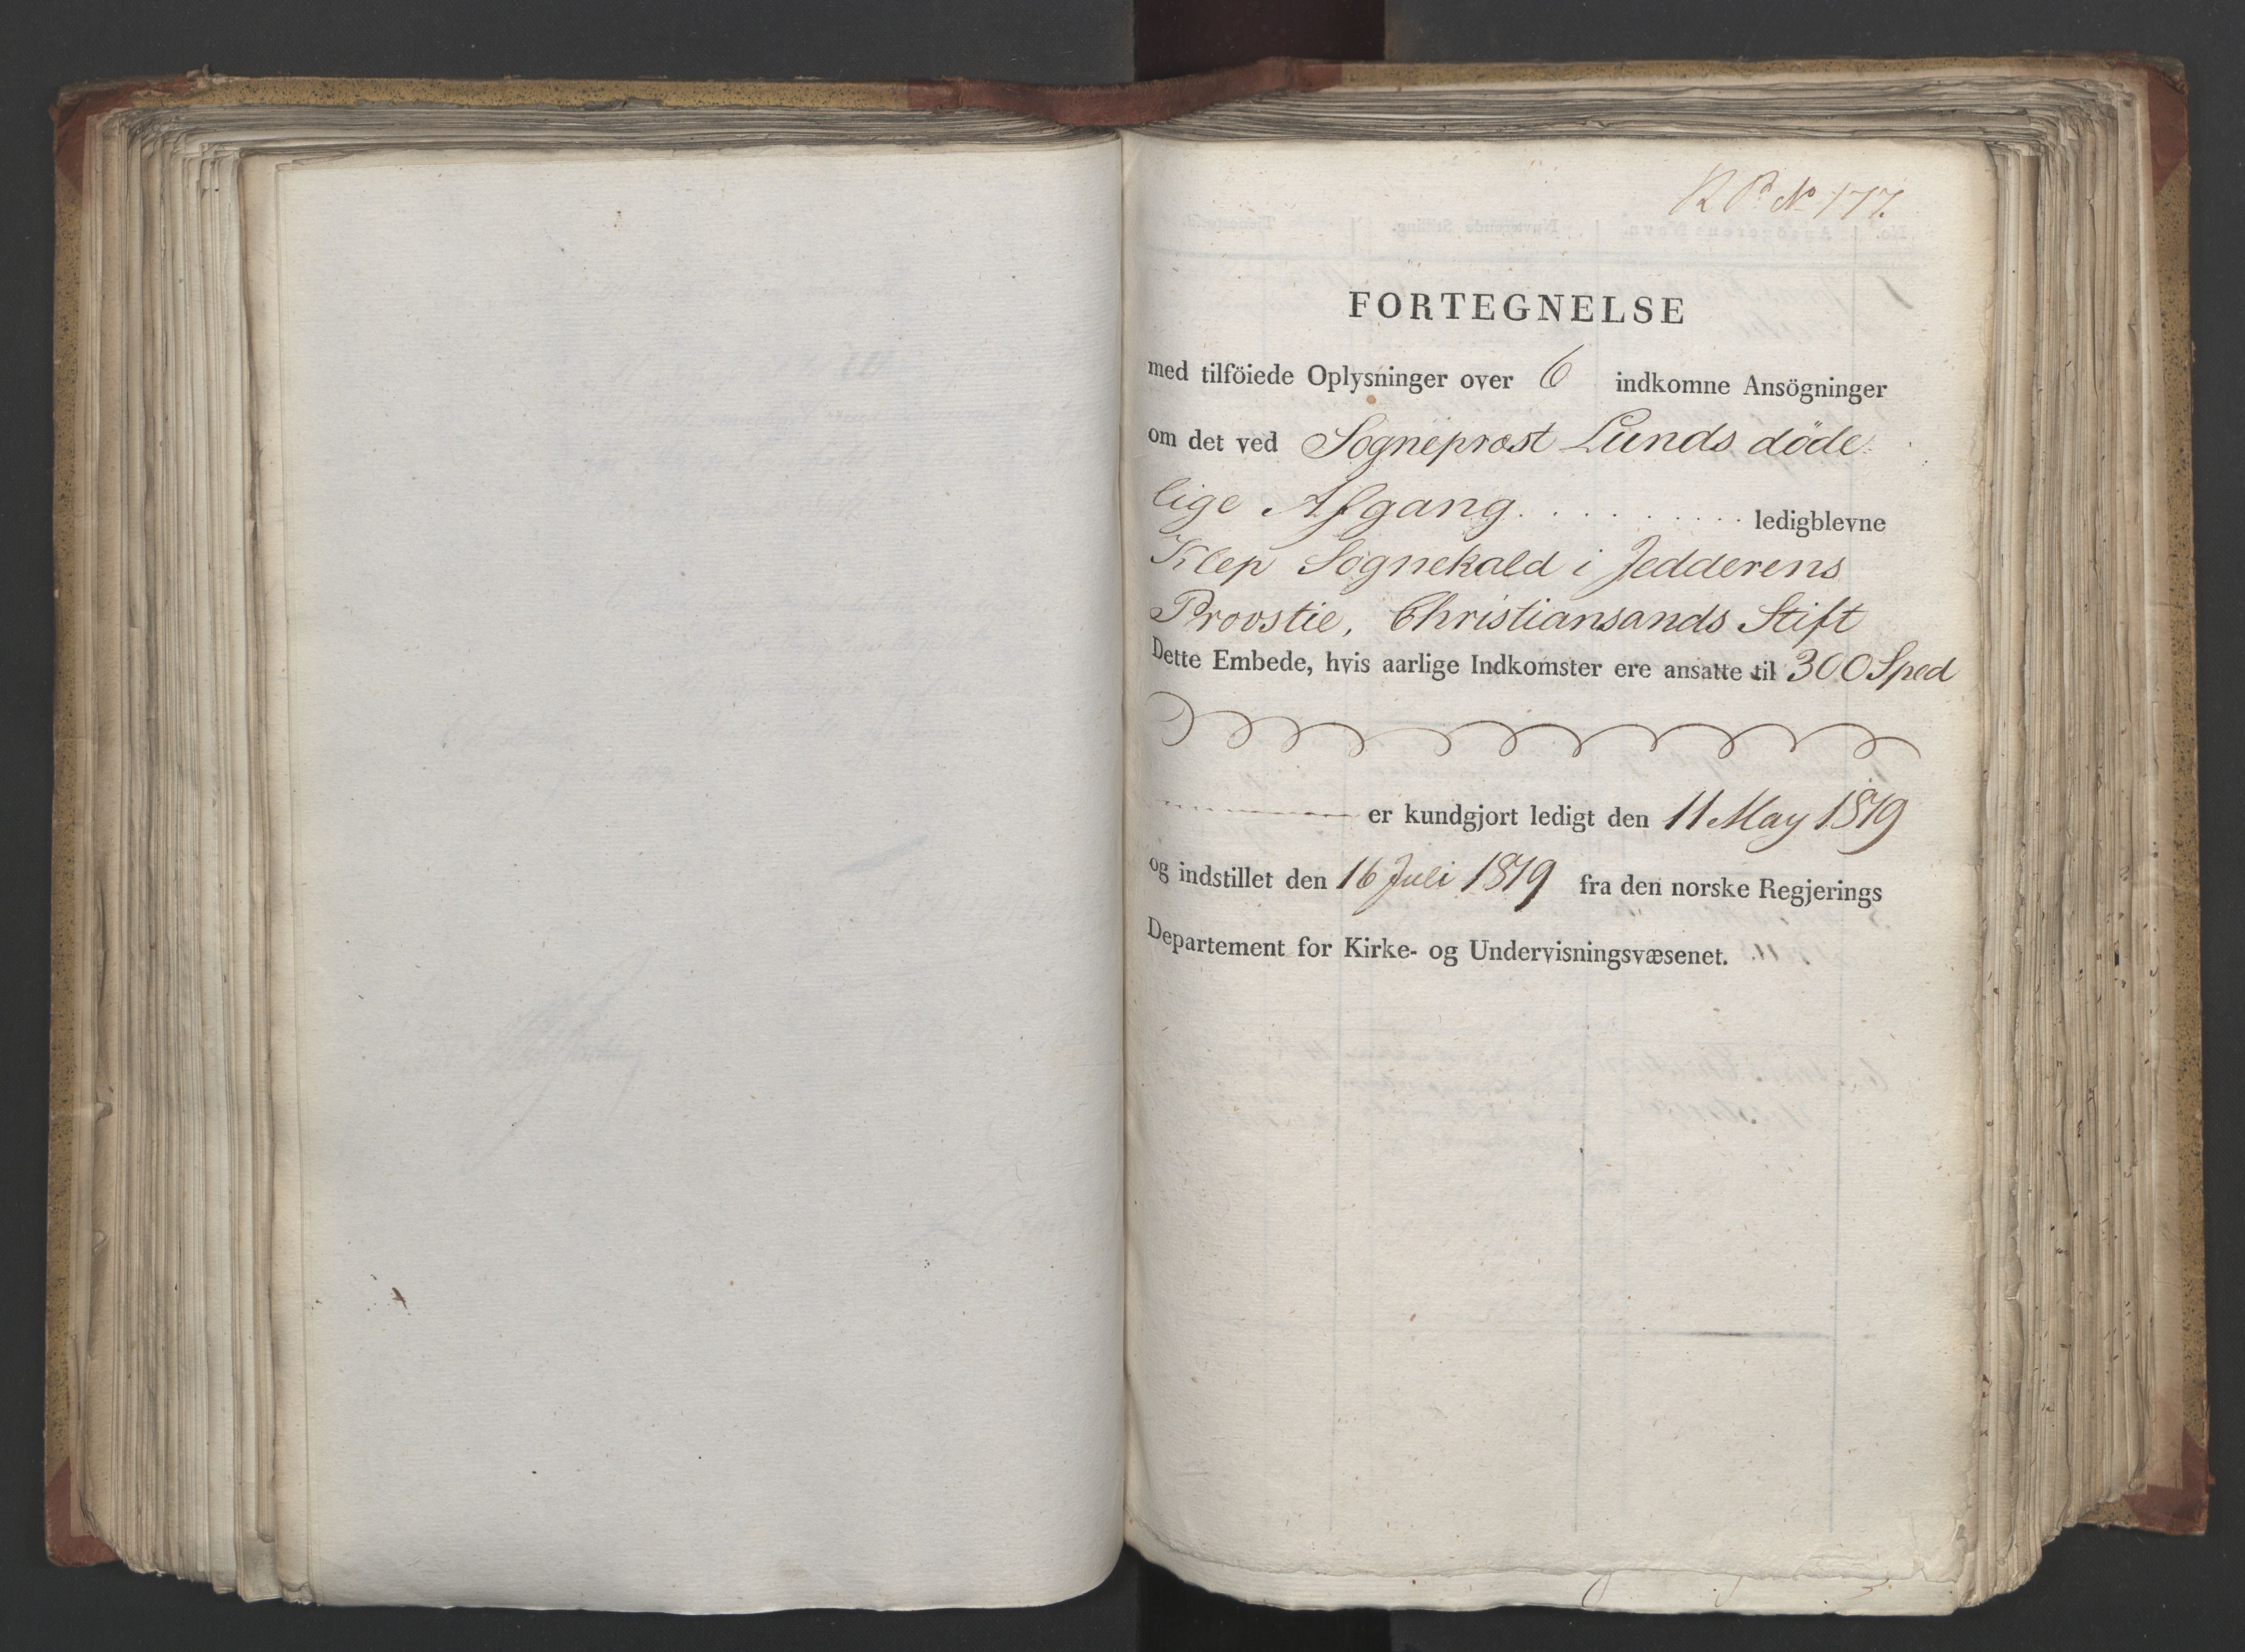 R P. No 177.
FORTEGNELSE
med tilföiede Oplysninger over 6 indkomne Ansögninger
om det ved Sognepræst Lunds döde-
lige Afgang. . . . . . . . . . ledigblevne
Klep Sognekald i Jedderens
Provstie, Christiansands Stift
Dette Embede, hvis aarlige Indkomster ere ansatte til 300 Sped
er kundgjort ledigt den 11 May 1819
og indstillet den 16 Juli 1819 fra den norske Regjerings
Departement for Kirke- og Undervisningsvæsenet.